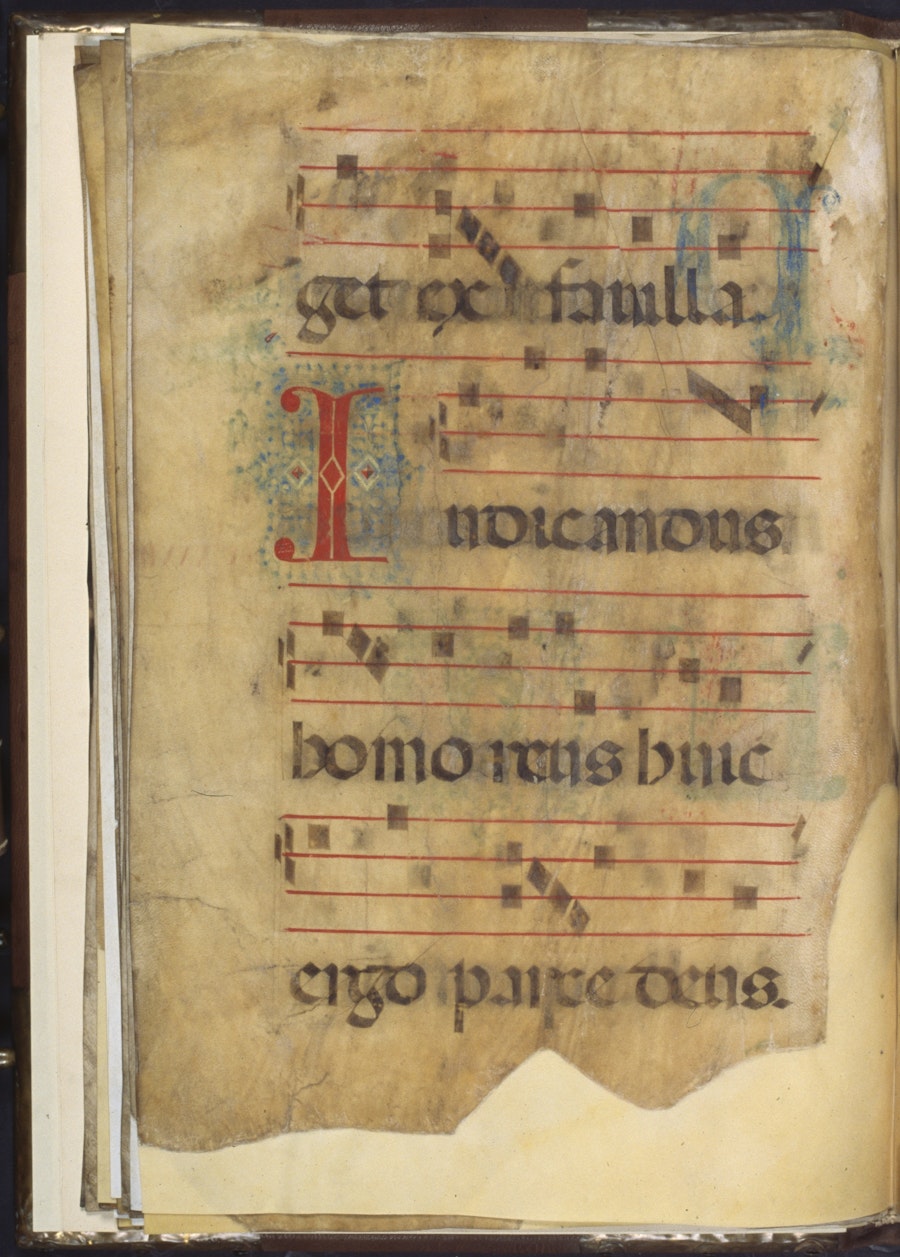 get ex fauilla.
Iudicandus
homo reus huic
ergo parce deus.